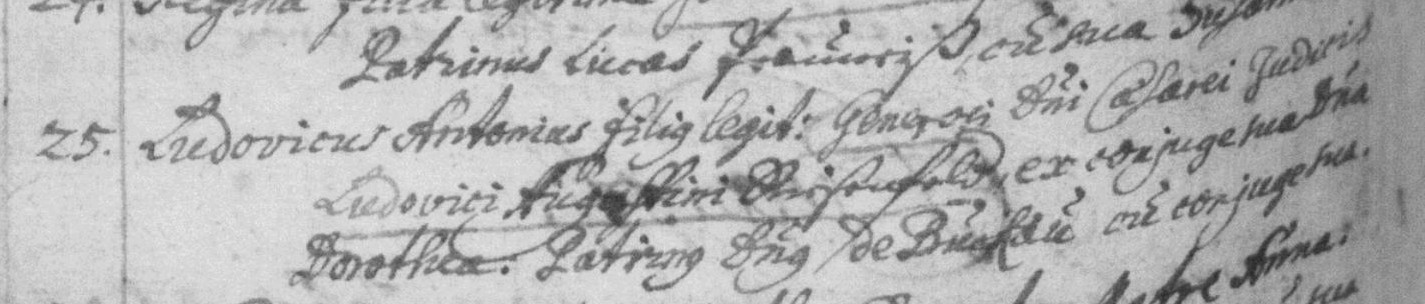 24. Regina filia legitima
Patrinus Lucas cũ sua
25. Ludovicus Antonius filig legit: Generosi Dñi Cæsarei Judicis
Ludovici Augustini ex conjuge sua Dña
Dorothea. Patring Dñg de cũ conjuge sua.
Anna.